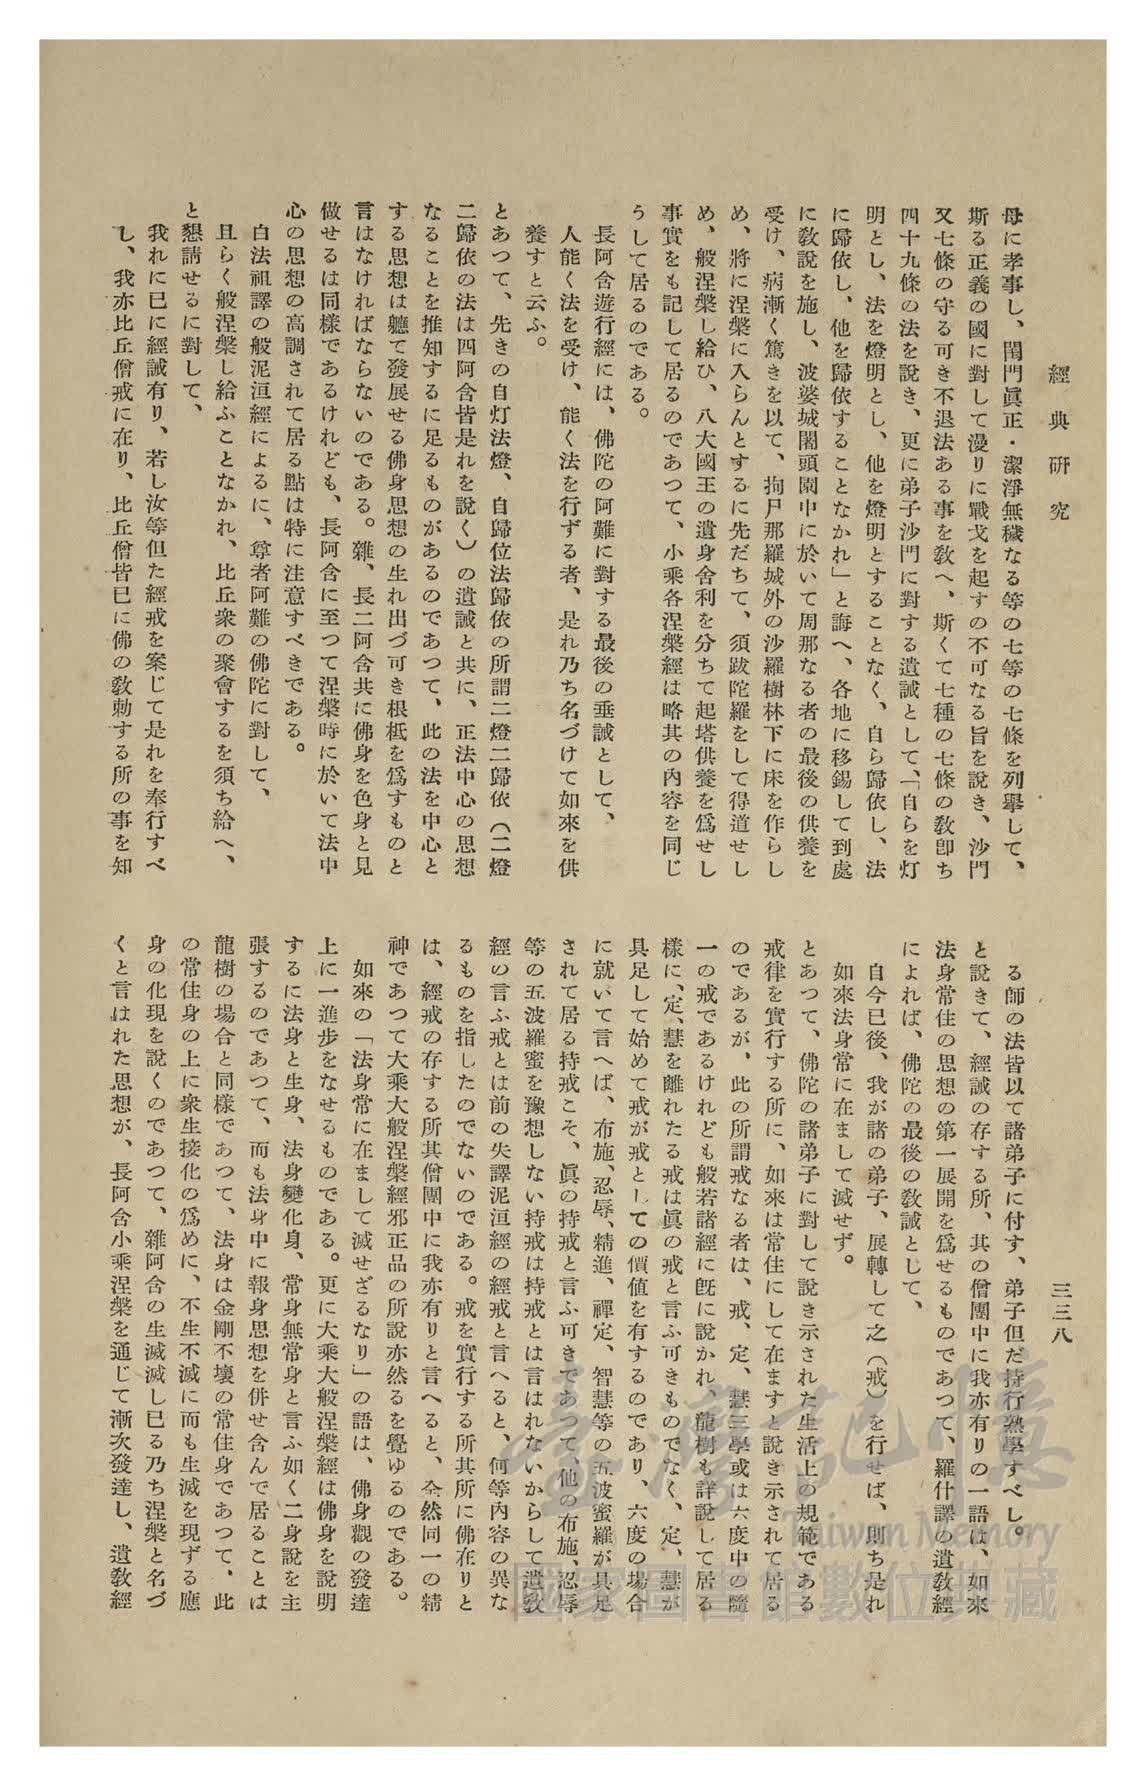 經典研究
三三八
母に孝事し、閨門眞正・潔淨無穢なる等の七等の七條を列擧して、
斯る正義の國に對して漫りに戰戈を起すの不可なる旨を說き、沙門
又七條の守る可き不退法ある事を敎へ、斯くて七種の七條の敎卽ち
四十九條の法を說き、更に弟子沙門に對する遺誡として、「自らを灯
明とし、法を燈明とし、他を燈明とすることなく、自ら歸依し、法
に歸依し、他を歸依することなかれ」と誨へ、各地に移錫して到處
に敎說を施し、波婆城闍頭園中に於いて周那なる者の最後の供養を
受け、病漸く篤きを以て、拘尸那羅城外の沙羅樹林下に床を作らし
め、將に涅槃に入らんとするに先だちて、須跋陀羅をして得道せし
め、般涅槃し給ひ、八大國王の遺身舍利を分ちて起塔供養を爲せし
事實をも記して居るのであつて、小乘各涅槃經は略其の內容を同じ
うして居るのである。
長阿含遊行經には、佛陀の阿難に對する最後の垂誡として、
人能く法を受け、能く法を行ずる者、是れ乃ち名づけて如來を供
養すと云ふ。
とあつて、先きの自灯法燈、自歸位法歸依の所謂二燈二歸依（二燈
二歸依の法は四阿含皆是れを說く）の遺誡と共に、正法中心の思想
なることを推知するに足るものがあるのであつて、此の法を中心と
する思想は軈て發展せる佛身思想の生れ出づ可き根柢を爲すものと
言はなければならないのである。雜、長二阿含共に佛身を色身と見
做せるは同樣であるけれども、長阿含に至つて涅槃時に於いて法中
心の思想の高調されて居る點は特に注意すべきである。
白法祖譯の般泥洹經によるに、尊者阿難の佛陀に對して、
且らく般涅槃し給ふことなかれ、比丘衆の聚會するを須ち給へ、
と懇請せるに對して、
我れに已に經誡有り、若し汝等但た經戒を案じて是れを奉行すべ
し、我亦比丘僧戒に在り、比丘僧皆已に佛の敎勅する所の事を知
る師の法皆以て諸弟子に付す、弟子但だ持行熟學すべし。
と說きて、經誡の存する所、其の僧團中に我亦有りの一語は、如來
法身常住の思想の第一展開を爲せるものであつて、羅什譯の遺敎經
によれば、佛陀の最後の敎誡として、
自今已後、我が諸の弟子、展轉して之（戒）を行せば、則ち是れ
如來法身常に在まして滅せず。
とあつて、佛陀の諸弟子に對して說き示された生活上の規範である
戒律を實行する所に、如來は常住にして在ますと說き示されて居る
のであるが、此の所謂戒なる者は、戒、定、慧三學或は六度中の隨
一の戒であるけれども般若諸經に旣に說かれ、龍樹も詳說して居る
樣に、定、慧を離れたる戒は眞の戒と言ふ可きものでなく、定、慧が
具足して始めて戒が戒としての價値を有するのであり、六度の場合
に就いて言へば、布施、忍辱、精進、禪定、智慧等の五波蜜羅が具足
されて居る持戒こそ、眞の持戒と言ふ可きであつて、他の布施、忍辱
等の五波羅蜜を豫想しない持戒は持戒とは言はれないからして遺敎
經の言ふ戒とは前の失譯泥洹經の經戒と言へると、何等內容の異な
るものを指したのでないのである。戒を實行する所其所に佛在りと
は、經戒の存する所其僧團中に我亦有りと言へると、全然同一の精
神であつて大乘大般涅槃經邪正品の所說亦然るを覺ゆるのである。
如來の「法身常に在まして滅せざるなり」の語は、佛身觀の發達
上に一進步をなせるものである。更に大乘大般涅槃經は佛身を說明
するに法身と生身、法身變化身、常身無常身と言ふ如く二身說を主
張するのであつて、而も法身中に報身思想を併せ含んで居ることは
龍樹の場合と同樣であつて、法身は金剛不壞の常住身であつて、此
の常住身の上に衆生接化の爲めに、不生不滅に而も生滅を現ずる應
身の化現を說くのであつて、雜阿含の生滅滅し已る乃ち涅槃と名づ
くと言はれた思想が、長阿含小乘涅槃を通じて漸次發達し、遺敎經
臺灣記憶
Taiwan Memory
國家圖書館數位典藏